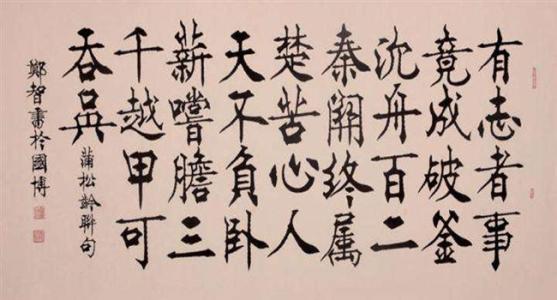 有志者事
竟成破釜
沈舟百二
秦關終屬
楚苦心人
天不負卧
薪嚐膽三
千越甲可
吞吳
蒲松齡聯句
鄭智書於國博